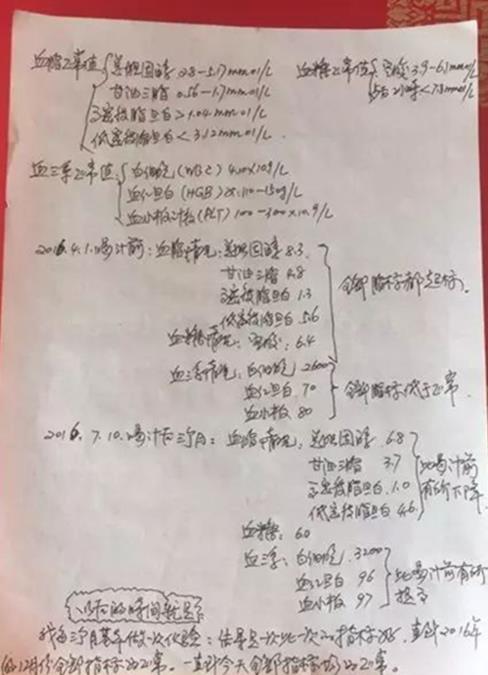 血脂正常值 总胆固醇 2.8-5.17mmol/L 血糖正常值 空腹 3.9-6.1mmol/L
甘油三脂 0.56-1.7mmol/L 后2小时<7.8mmol/L
高密度脂旦白>1.04mmol/L
低密度脂旦白<3.12mmol/L
血三系正常值: 白细胞(WBC) 4-10×109/L
血红旦白(HGB) 110-150g/L
血小板计数(PLT) 100-300×10.9/L
2016.4.1.喝汁前:血脂情况:总胆固醇 8.3
甘油三脂 4.8
高密度脂旦白 1.3 全部指标都超标.
低密度脂旦白 5.6
血糖情况:空腹: 6.4
血三系情况:白细胞 2600
血红旦白. 70 全部指标低于正常.
血小板 80
2016.7.10.喝汁后三个月: 血脂情况:总胆固醇 6.8
甘油三脂 3.7 比喝汁前
高密度脂旦白. 1.0 有所下降.
低密度脂旦白 4.6
血糖: 6.0
血三系:白细胞.3200
血红旦白 96 比喝汁前有所
血小板 97 提高
以后的时间就是
我每三个月基本做一次化验:结果是一次比一次的指标好.直到2016年
的12月份全部指标均正常.一直到今天全部指标均正常.